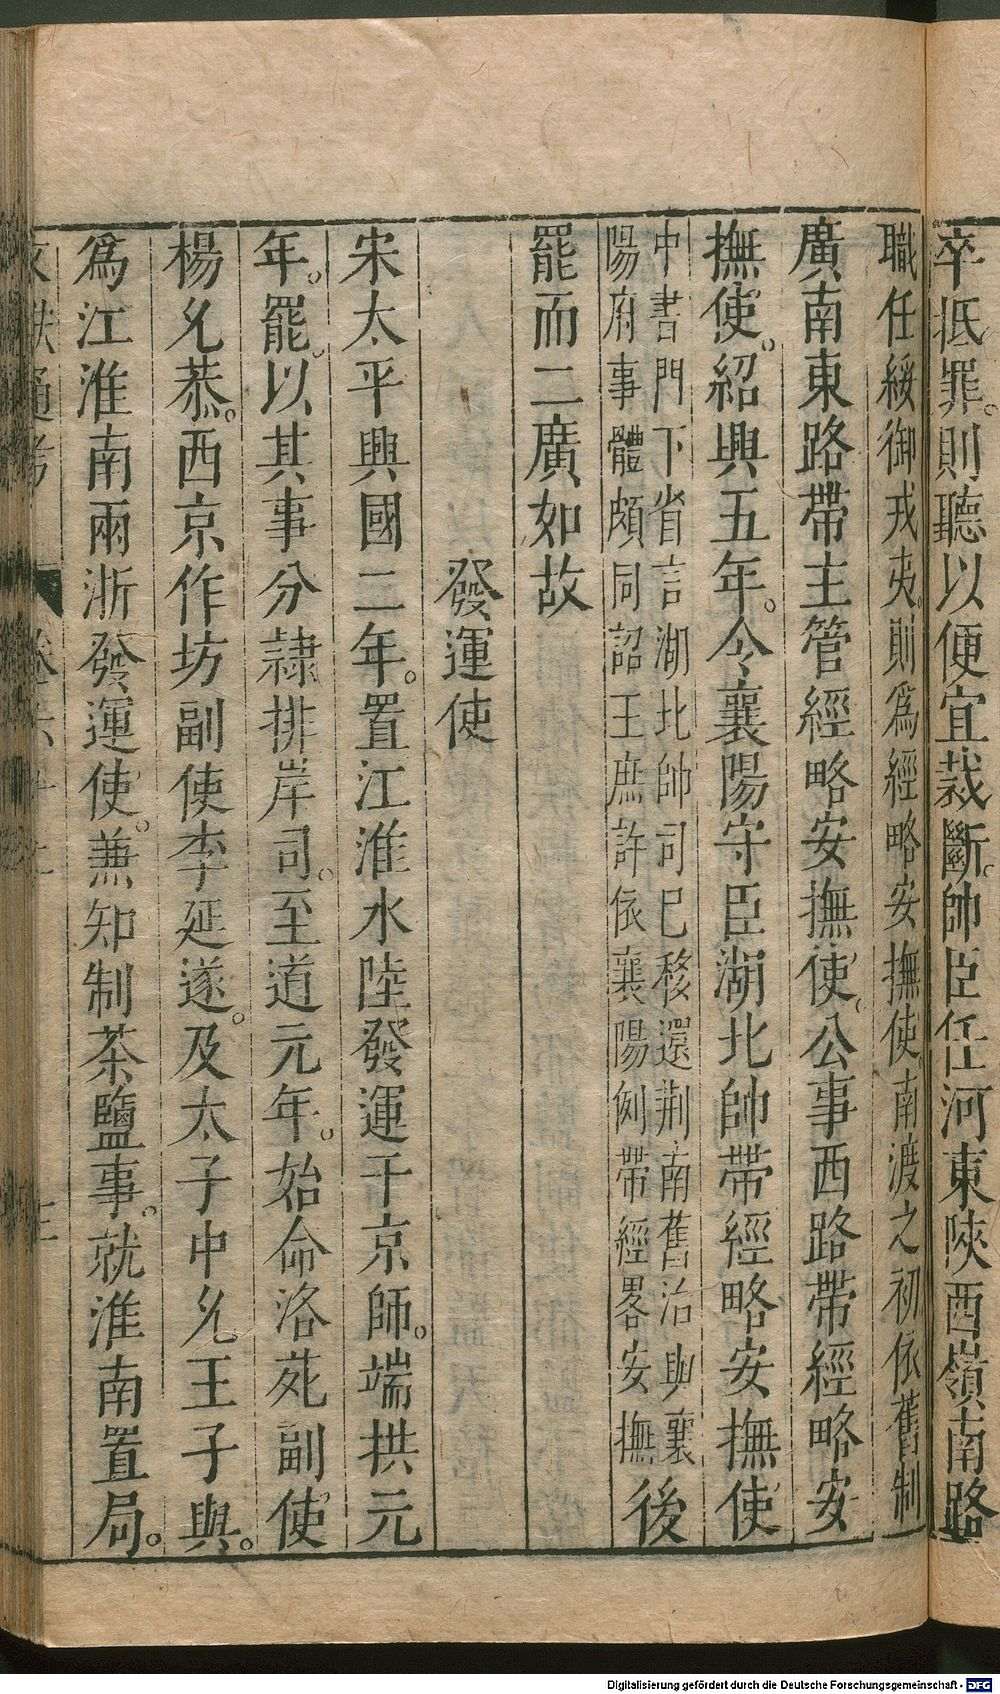 卒抵罪。則聽以便宜裁斷。帥臣任河東陝西嶺南路
職任綏御戎夷。則爲經略安撫使南渡之初依舊制
廣南東路帶主管經略安撫使。公事西路帶經略安
撫使。紹興五年。令襄陽守臣湖北帥帶經略安撫使
中書門下省言湖北帥司已移還荆南舊治與襄
陽府事體頗同詔王庶許依襄陽例帶經畧安撫
後
罷而二廣如故
發運使
宋太平興國二年。置江淮水陸發運于京師。端拱元
年。罷。以其事分隷排岸司。至道元年。始命洛苑副使
楊允恭。西京作坊副使李延遂。及太子中允王子與。
爲江淮南兩浙發運使。兼知制茶鹽事。就淮南置局。
文獻通考
Digitalisierung gefördert durch die Deutsche Forschungsgemeinschaft - DFG